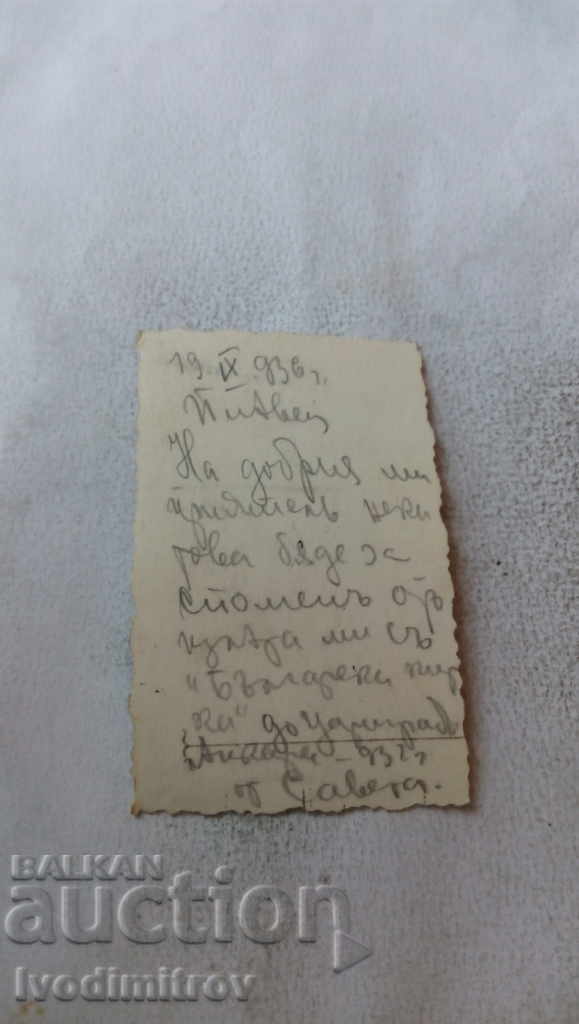 19 IX 936 г.
На добрия ми
приятель нека
това бѫде за
споменъ отъ
ми съ
"Българска
" до Цариградъ
от Савета.
BALKAN
auction
Ivodimitrov